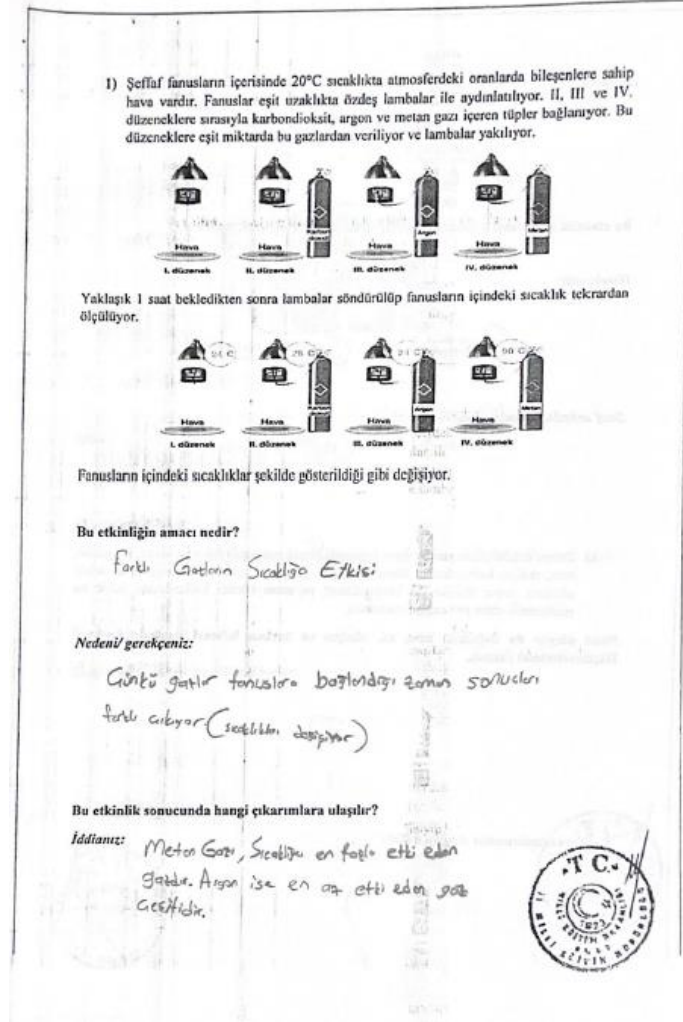 1) Şeffaf fanusların içerisinde 20°C sıcaklıkta atmosferdeki oranlarda bileşenlere sahip
hava vardır. Fanuslar eşit uzaklıkta özdeş lambalar ile aydınlatılıyor. II, III ve IV.
düzeneklere sırasıyla karbondioksit, argon ve metan gazı içeren tüpler bağlanıyor. Bu
düzeneklere eşit miktarda bu gazlardan veriliyor ve lambalar yakılıyor.
Hava Hava Hava Hava
Argon Metan
I. düzenek II. düzenek III. düzenek IV. düzenek
Yaklaşık 1 saat bekledikten sonra lambalar söndürülüp fanusların içindeki sıcaklık tekrardan
ölçülüyor.
Hava Hava Hava Hava
Argon Metan
I. düzenek II. düzenek III. düzenek IV. düzenek
Fanusların içindeki sıcaklıklar şekilde gösterildiği gibi değişiyor.
Bu etkinliğin amacı nedir?
Farklı Gazların Sıcaklığa Etkisi
Nedeni/ gerekçeniz:
Çünkü gazlar fanuslara bağlandığı zaman sonuçları
farklı çıkıyor (sıcaklıkları değişiyor)
Bu etkinlik sonucunda hangi çıkarımlara ulaşılır?
İddianız:
Metan Gazı, Sıcaklığa en fazla etki eden
gazdır. Argon ise en az etki eden gaz
çeşitidir.
T C.
1923